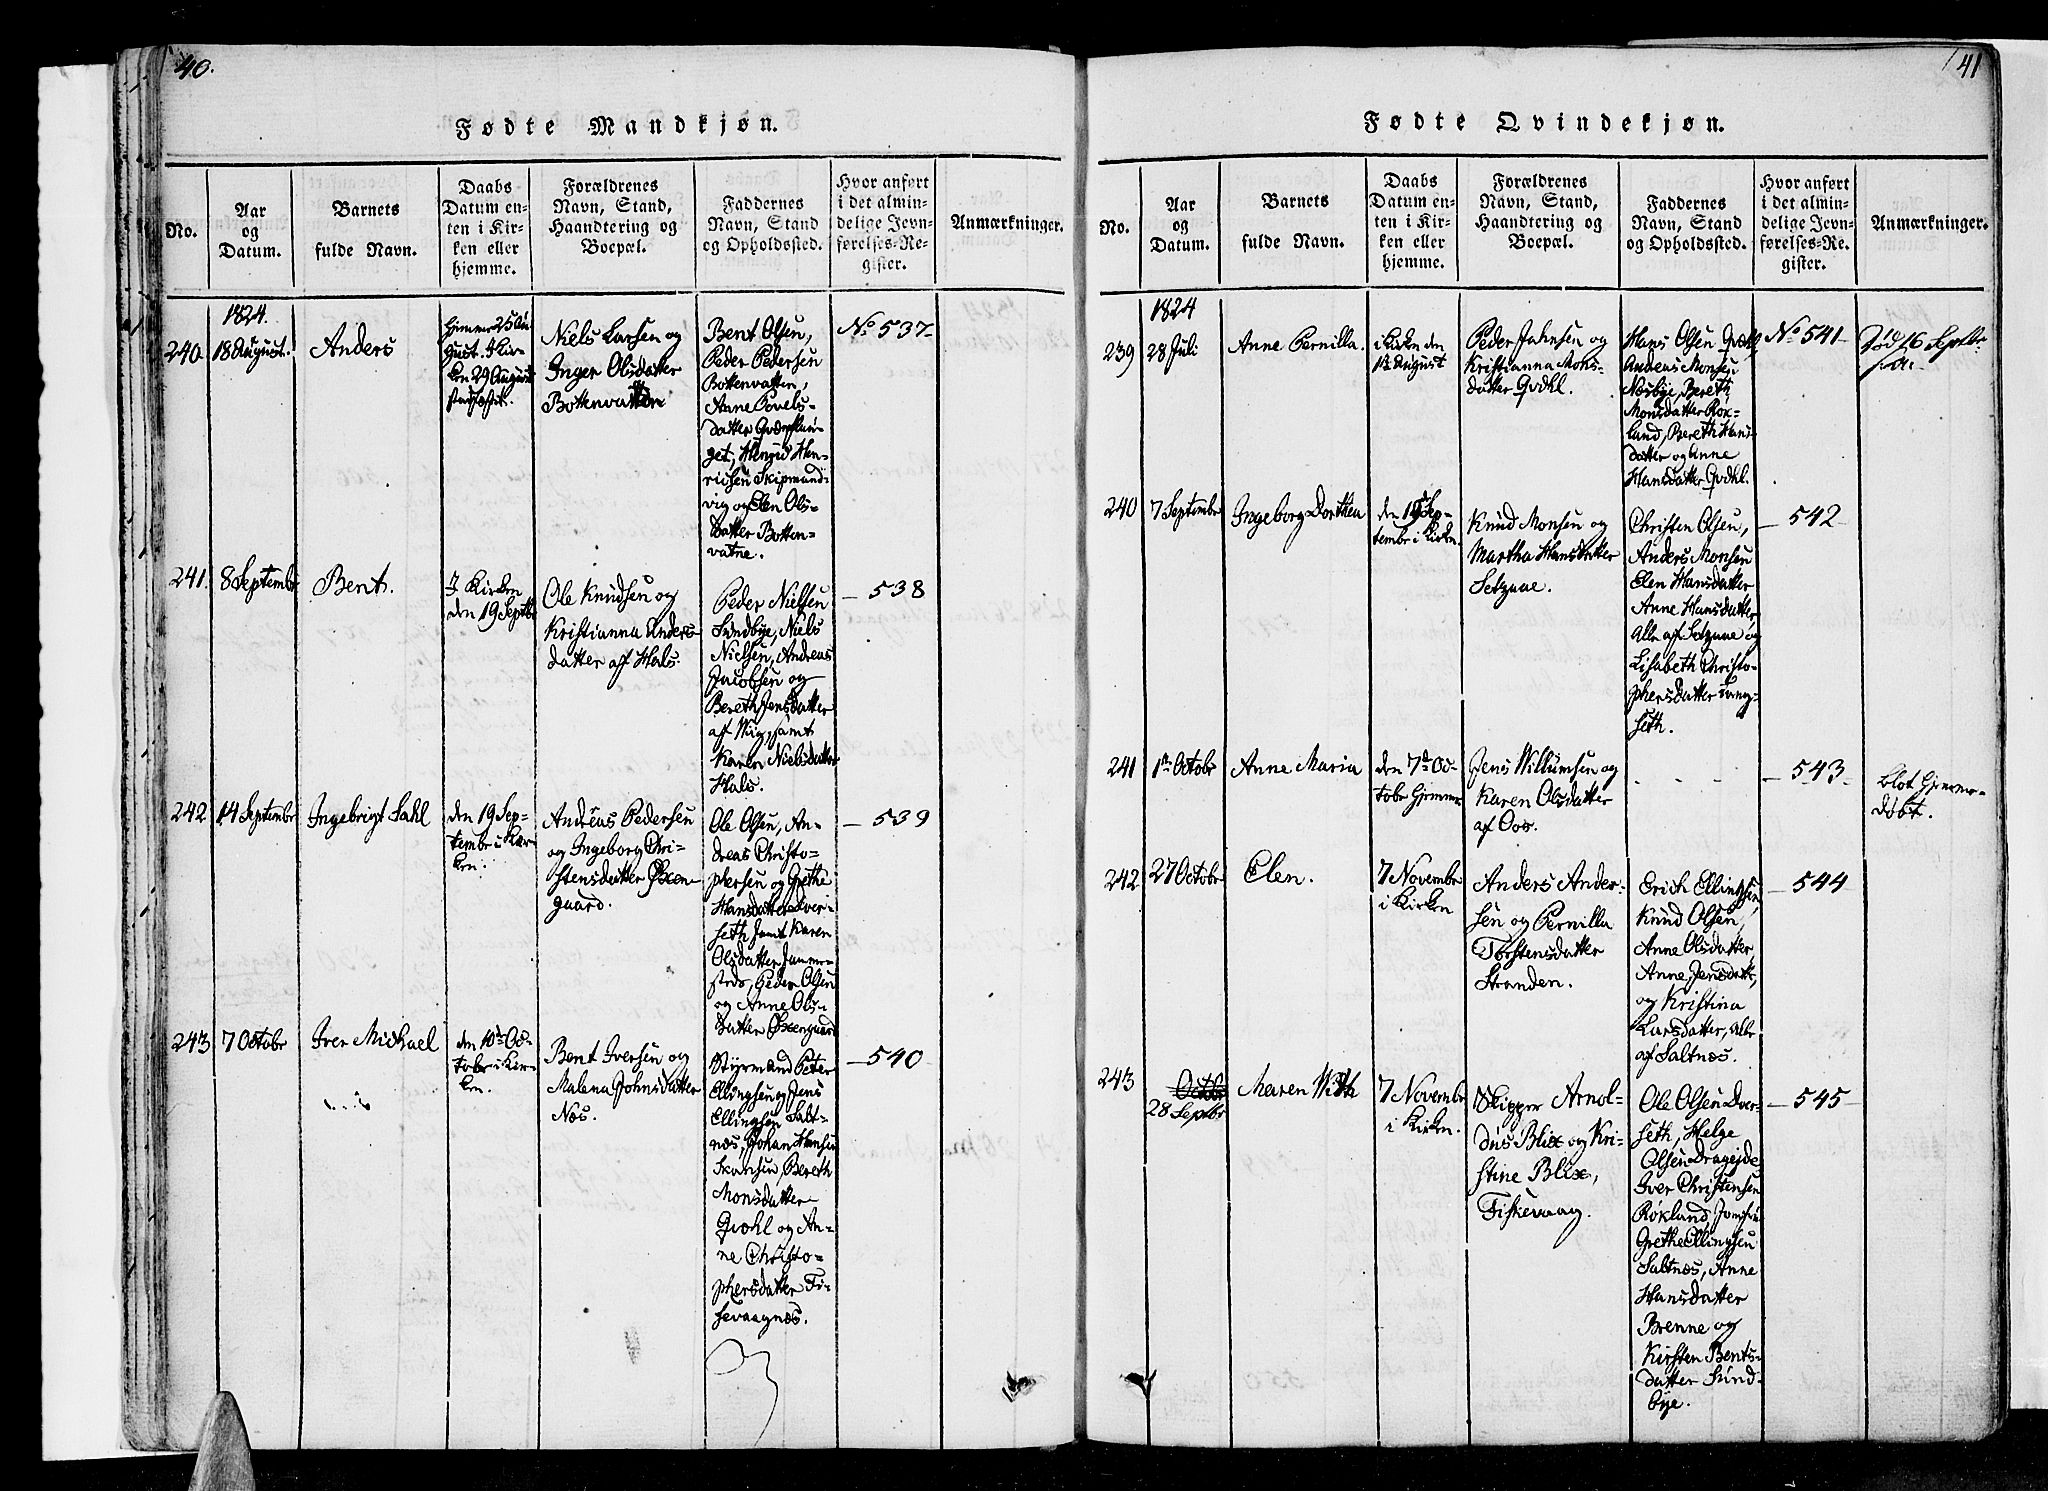 40.
Fødte Mandkjøn.
No.
Aar
og
Datum.
Barnets
fulde Navn.
Daabs
Datum en-
ten i Kir-
ken eller
hjemme.
Forældrenes
Navn, Stand,
Haandtering og
Boepæl.
Faddernes
Navn, Stand
og Opholdssted.
Hvor anført
i det almin-
delige Jevn-
førelses-Re-
gister.
Anmærkninger.
1824.
240.
18 August.
Anders
Hjemme 25 Au-
gust. I Kir-
ken 29 August
Niels Larsen og
Inger Olsdatter
Bottenvatten
Bent Olsen,
Peder Pedersen
Bottenvatten,
Anne Povels-
datter
get, Hen-
richsen Skipmand-
vig og Elen Ols-
datter Botten-
vatne.
No. 537-
241.
8 Septembr
Bent.
I Kirken
den 19 Septbr
Ole Knudsen og
Kristianna Anders-
datter af Hals.
Peder Nielsen
Sundbye, Niels
Nielsen, Andreas
Jacobsen og
Bereth Jensdatter
af Wiig, samt
Karen Nielsdatter
Hals.
- 538
242
14 Septembr
Ingebrigt Dahl
den 19 Sep-
tembr i Kir-
ken.
Andreas Pedersen
og Ingeborg Chri-
stensdatter Øxen-
gaard.
Ole Olsen, An-
dreas Christo-
phersen og Grethe
Hansdatter Dver-
seth samt Karen
Olsdatter
Peder Olsen
og Anne Ols-
datter Øxengaard
- 539
243
7 Octobr
Iver Michael
den 10de Oc-
tobr i Kir-
ken.
Bent Iversen og
Malena Johnsdatter
Næs.
Styrmand Peter
Ellingsen og Jens
Ellingsen Salt-
næs, Johan Hansen
Skansen, Bereth
Monsdatter
Qvohl og An-
ne Christo-
phersdatter Fi-
skevaagnæs.
- 540
41
Fødte Qvindekjøn.
No.
Aar
og
Datum.
Barnets
fulde Navn.
Daabs
Datum en-
ten i Kir-
ken eller
hjemme.
Forældrenes
Navn, Stand,
Haandtering og
Boepæl.
Faddernes
Navn, Stand
og Opholdssted.
Hvor anført
i det almin-
delige Jevn-
førelses-Re-
gister.
Anmærkninger.
1824
239
28 Juli
Anne Pernilla.
i Kirken den
August
Peder Jahnsen og
Kristianna Mons-
datter Qvohl.
Hans Olsen Qvohl,
Andreas Monsen
Næsbye, Bereth
Monsdatter Røk-
land, Bereth Hans-
datter og Anne
Hansdatter Qvohl.
No. 541-
Død 16 Septbr
240
7 Septembr
Ingeborg Dorthea
den 19 Sep-
tembr i Kirken.
Knud Monsen og
Martha Hansdatter
Setzaae.
Christen Olsen,
Anders Monsen
Elen Hansdatter
Anne Hansdatter,
Alle af Setzaae og
Lisabeth Christo-
phersdatter
seth.
- 542-
241
1ste Octobr
Anne Maria
den 7de Oc-
tobr Hjemme
Jens Willumsen og
Karen Olsdatter
af Oos.
- 543-
blot Hjemme-
døbt.
242
27 Octobr
Elen.
7 Novembr
i Kirken
Anders Ander-
sen og Pernilla
Torstensdatter
Stranden.
Erich Ellingsen,
Knud Olsen,
Anne Olsdatter,
Anne Jensdatter,
og Kristina
Larsdatter, alle
af Saltnæs.
- 544
243
Octobr
28 Septbr
Maren With
7 Novembr
i Kirken.
Skipper Arnol-
dus Blix og Kri-
stine Blix,
Fiskevaag.
Ole Olsen Dver-
seth, Helge
Olsen Drageide
Iver Christensen
Røkland, Jomfru
Grethe Ellingsen
Saltnæs, Anne
Hansdatter
Brenne og
Kirsten Bents-
datter Sund-
bye.
- 545-